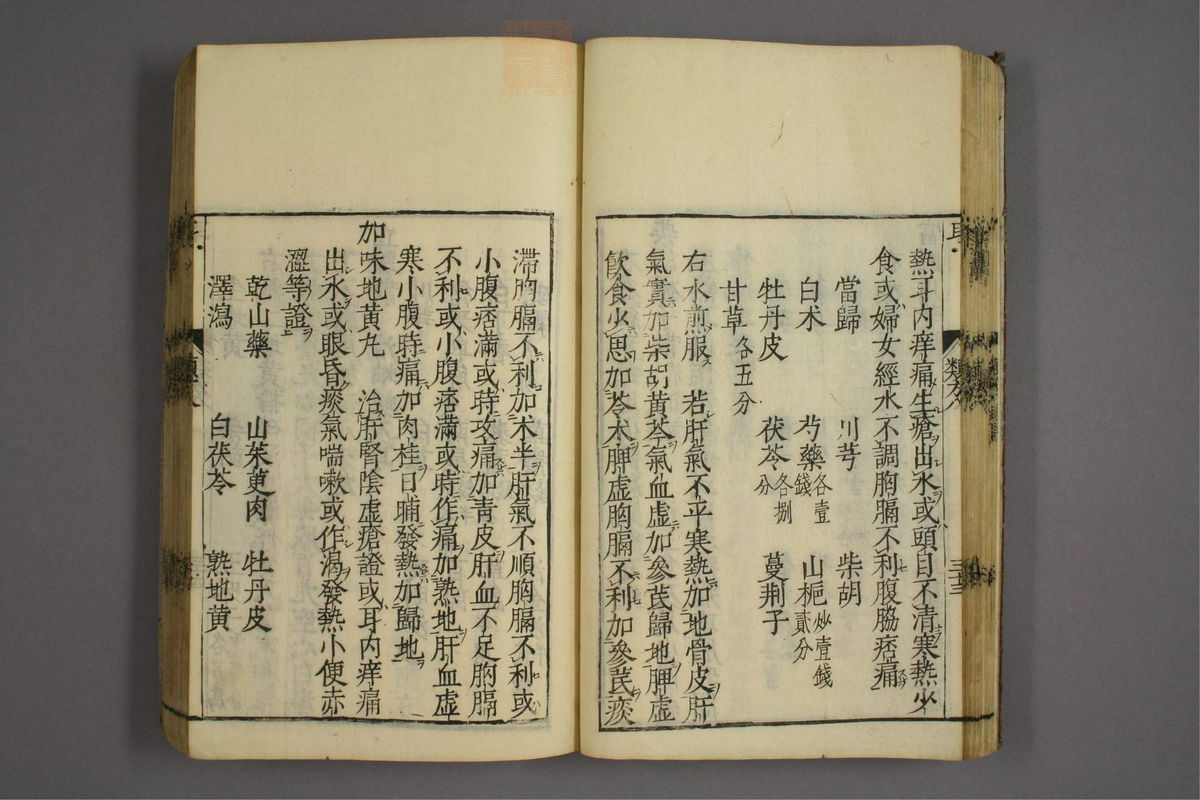 熱耳内痒痛生瘡出水或頭目不清寒熱少
食或婦女經水不調胸膈不利腹脇痞痛
當歸 川芎 柴胡
白术 芍藥各壹錢 山梔炒壹錢貳分
牡丹皮 茯苓各捌分 蔓荆子
甘草各五分
右水煎服 若肝氣不平寒熱加地骨皮肝
氣實加柴胡黃芩氣血虛加參芪歸地脾虛
飲食少思加苓术脾虛胸膈不利加參芪痰
滯胸膈不利加术半肝氣不順胸膈不利或
小腹痞滿或時攻痛加青皮肝血不足胸膈
不利或小腹痞滿或時作痛加熟地肝血虛
寒小腹時痛加肉桂日晡發熱加歸地
加味地黃丸 治肝腎陰虛瘡證或耳内痒痛
出水或眼昏痰氣喘嗽或作渴發熱小便赤
澀等證
乾山藥 山茱萸肉 牡丹皮
澤瀉 白茯苓 熟地黃